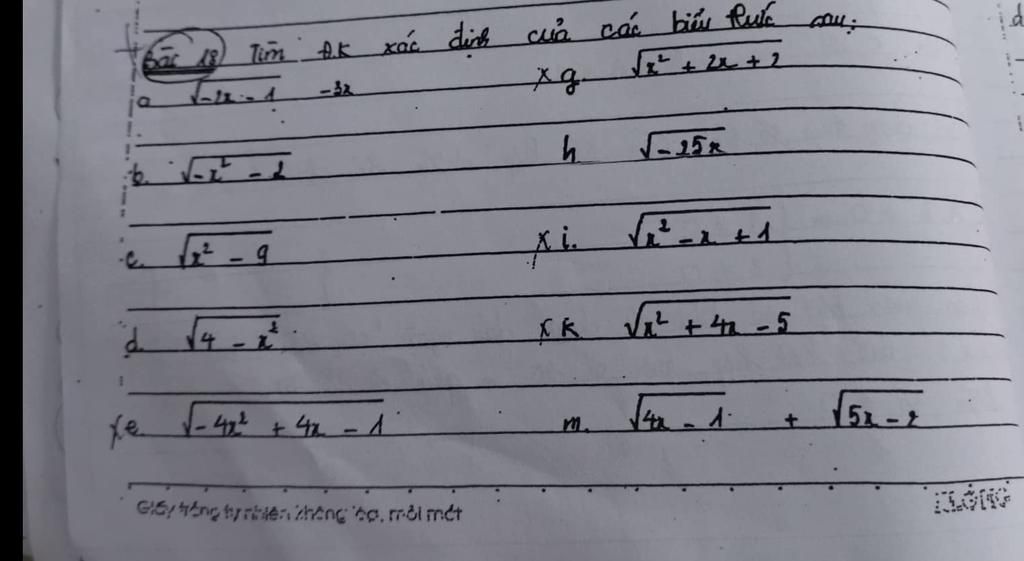 Bài 18 Tìm ĐK xác định của các biểu thức sau:
a √-2x - 1 -3x
x g. √x² + 2x + 2
b. √-x² - 2
h √-25x
c. √x² - 9
x i. √x² - x + 1
d. √4 - x²
x k √x² + 4x - 5
x e. √-4x² + 4x - 1
m. √4x - 1 + √5x - 2
Giấy trắng tự nhiên không lóa, mỏi mắt
KLONG
d